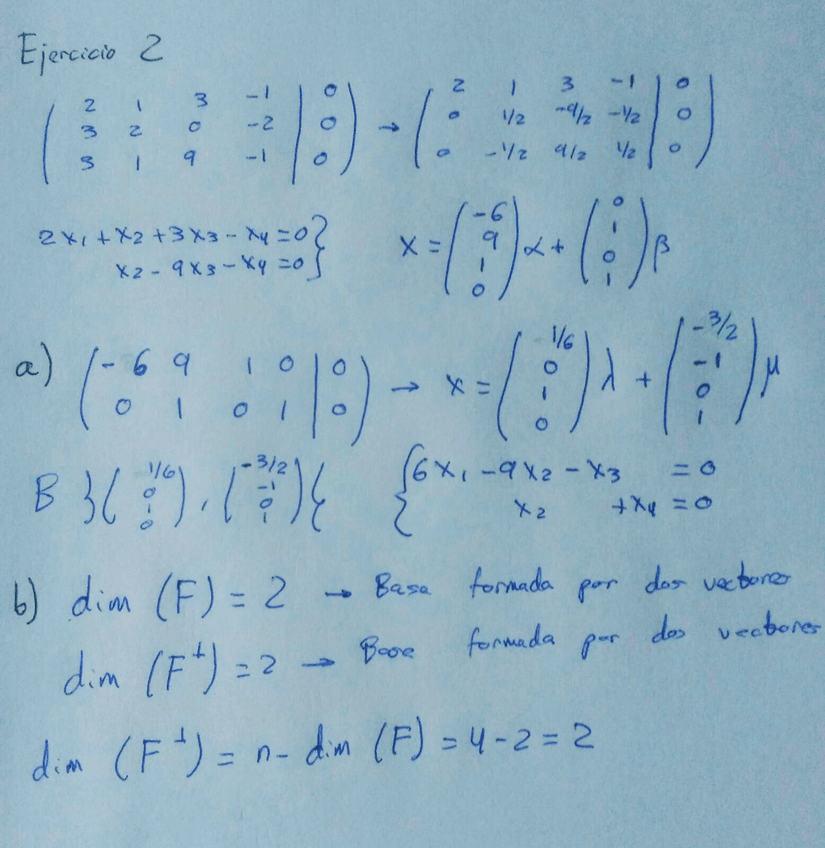 Ejercicio 2
( 2 1 3 -1 | 0 ) → ( 2 1 3 -1 | 0 )
( 3 2 0 -2 | 0 ) ( 0 1/2 -9/2 -1/2 | 0 )
( 3 1 9 -1 | 0 ) ( 0 -1/2 9/2 1/2 | 0 )
2x₁+x₂+3x₃-x₄=0 }
x₂-9x₃-x₄=0 }
x = (-6 9 1 0) α + (0 1 0 1) β
a) ( -6 9 1 0 | 0 ) → x = (1/6 0 1 0) λ + (-3/2 -1 0 1) μ
( 0 1 0 1 | 0 )
B }(1/6 0 1 0), (-3/2 -1 0 1){
{ 6x₁-9x₂-x₃ =0
x₂ +x₄=0
b) dim (F) = 2 → Base formada por dos vectores
dim (F⊥) = 2 → Base formada por dos vectores
dim (F⊥) = n- dim (F) = 4-2 = 2